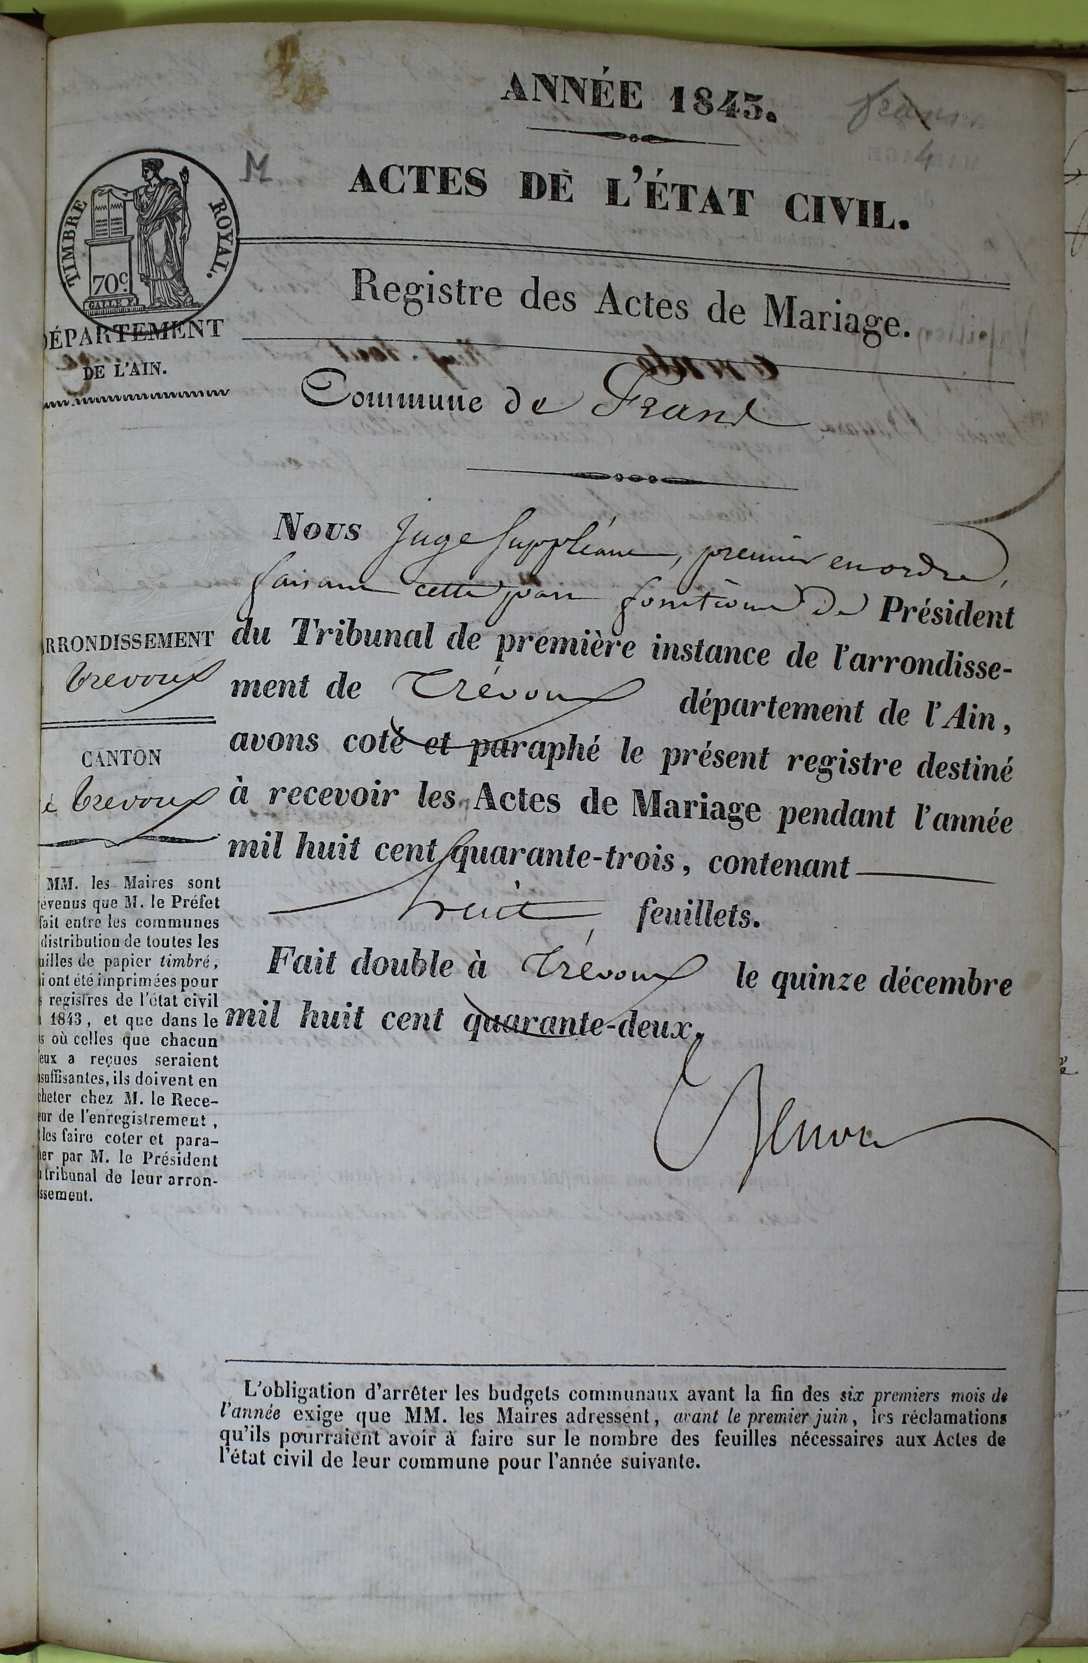 ANNÉE 1843.
M
4
ACTES DE L'ÉTAT CIVIL.
TIMBRE ROYAL.
70c
Registre des Actes de Mariage.
DÉPARTEMENT
DE L'AIN.
Commune de Frans
Nous Juge Suppléant, premier en ordre,
faisant cette part fonctions de Président
du Tribunal de première instance de l'arrondisse-
ment de Trévoux département de l'Ain,
avons coté et paraphé le présent registre destiné
à recevoir les Actes de Mariage pendant l'année
mil huit cent quarante-trois, contenant
huit feuillets.
Fait double à Trévoux le quinze décembre
mil huit cent quarante-deux.
RRONDISSEMENT
Trevoux
CANTON
Trevoux
MM. les Maires sont
révenus que M. le Préfet
fait entre les communes
distribution de toutes les
uilles de papier timbré,
i ont été imprimées pour
s registres de l'état civil
1843, et que dans le
s où celles que chacun
eux a reçues seraient
suffisantes, ils doivent en
cheter chez M. le Rece-
eur de l'enregistrement,
les faire coter et para-
er par M. le Président
tribunal de leur arron-
ssement.
L'obligation d'arrêter les budgets communaux avant la fin des six premiers mois de
l'année exige que MM. les Maires adressent, avant le premier juin, les réclamations
qu'ils pourraient avoir à faire sur le nombre des feuilles nécessaires aux Actes de
l'état civil de leur commune pour l'année suivante.